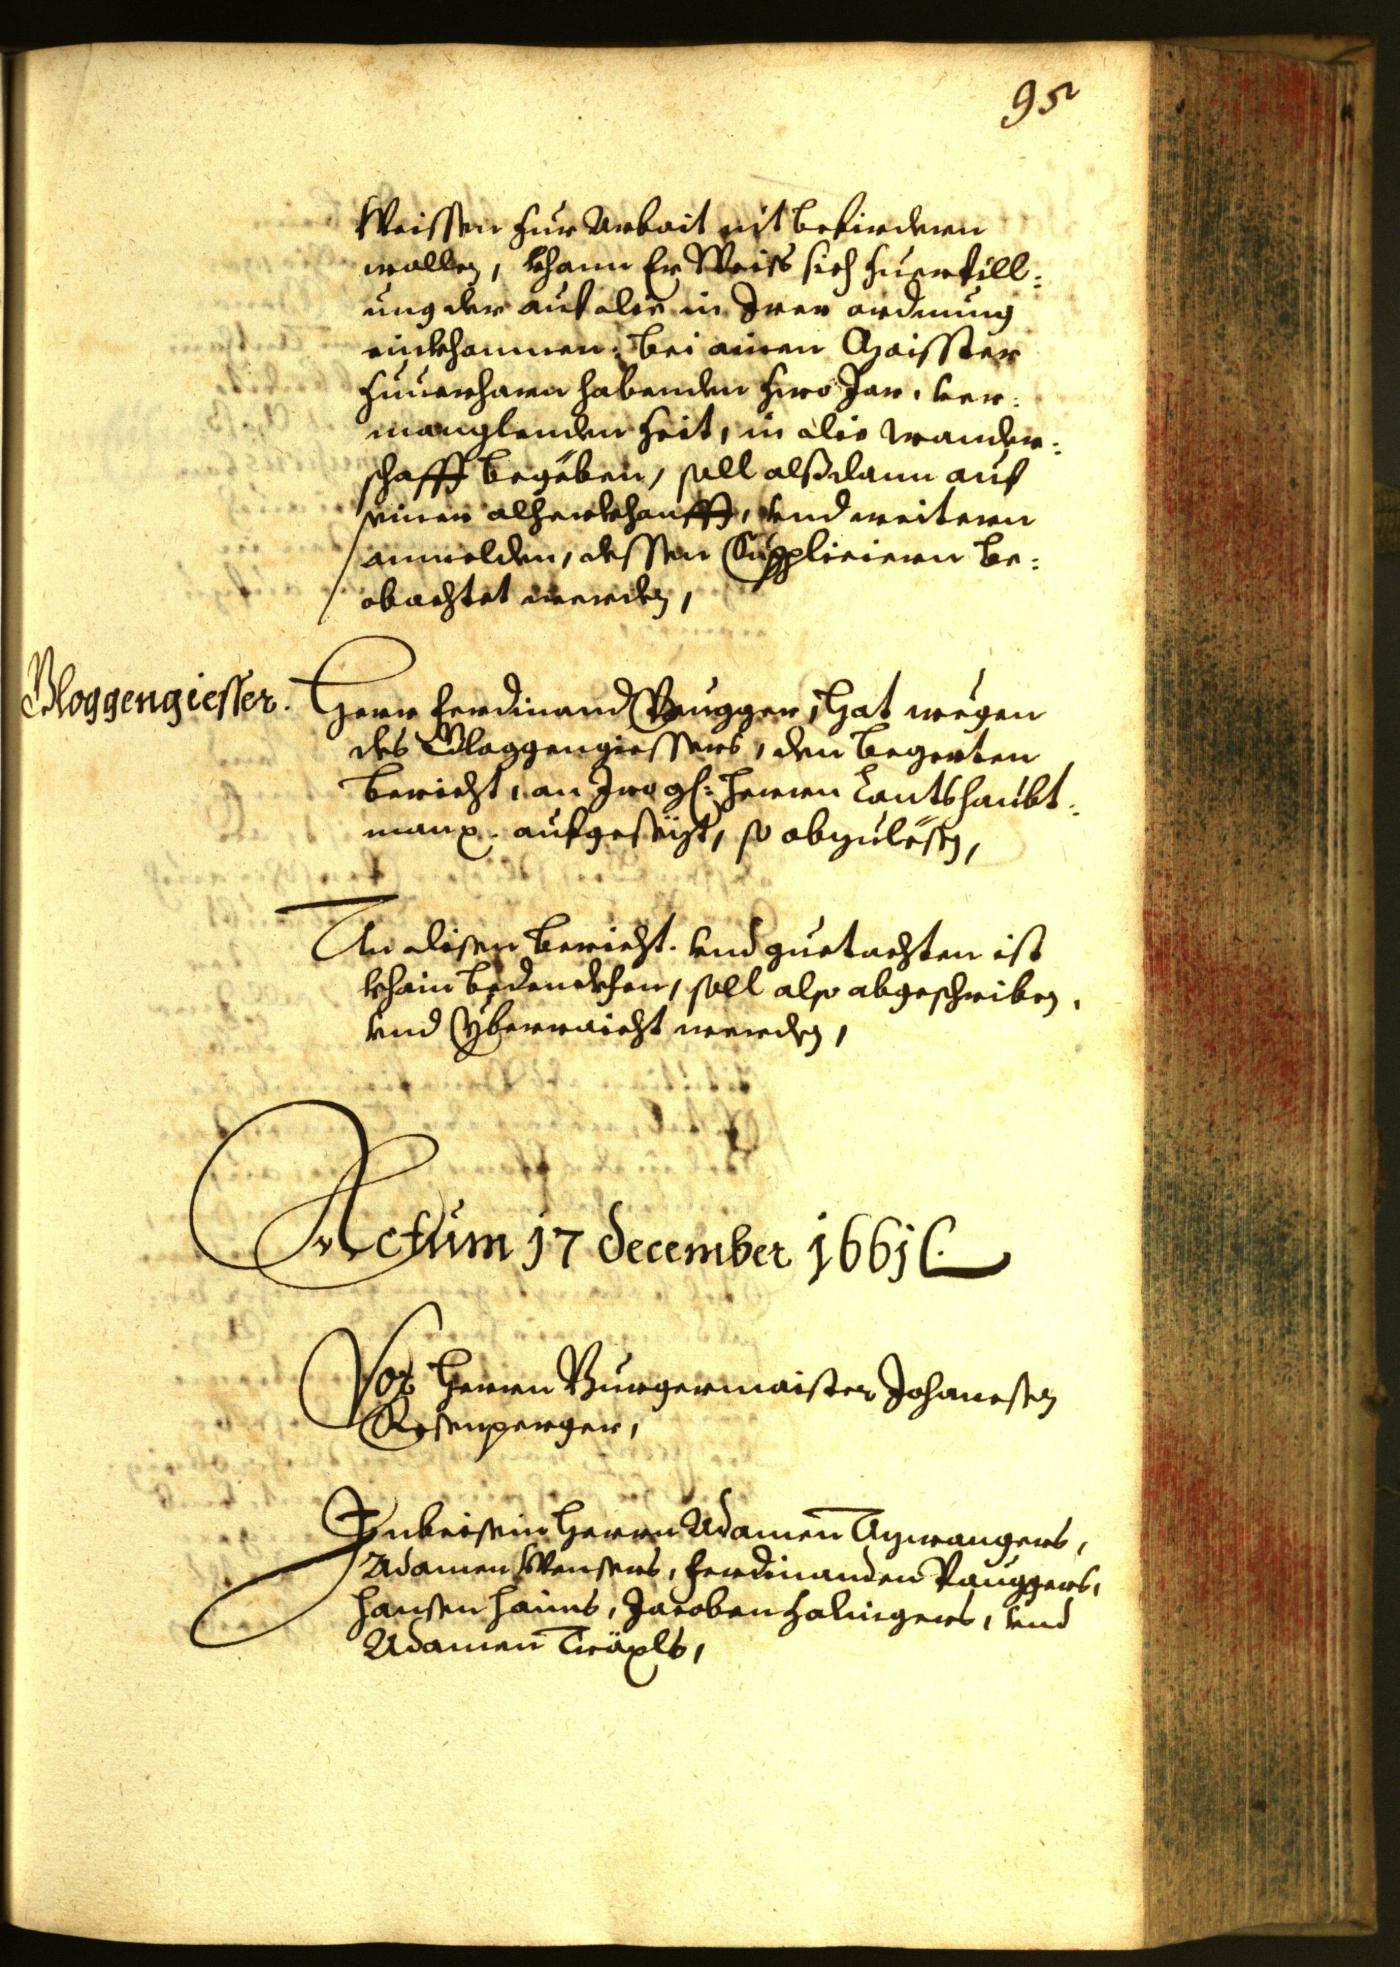 95
Weissen zur Arbait nit befirdern
wollen, khann Er Weiss sich zu erfill=
ung der auf die in Irer ordnung
einkhomen: bei ainen Maisster
zuuerharn habenden zwo Jar, ver=
manglenden Zeit, in die wander=
schafft begeben, soll alßdann auf
seiner alherkhonfft, vnd weitern
anmelden, dessen Supplicieren be=
obachtet werden,
Gloggengiesser.
Herr Ferdinand Paugger, Hat wegen
des Gloggengiessers, den begerten
bericht, an Iro gl: Herrn Lantshaubt=
man aufgesezt, so abzulesen,
An disen bericht. vnd guetachten ist
khain bedenckhen, soll also abgeschriben,
vnd Yberraicht werden,
Actum 17 december 1661
Vor Herrn Burgermaister Johanesen
Rosenperger,
In beisein Herrn Adamen Aywangers,
Adamen Wensers, Ferdinanden Pauggers,
Hansen Haims, Jacoben Holingers, vnd
Adamen Träxls,